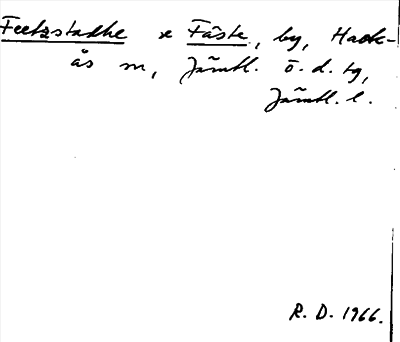 Feetzstadhe x Fåste, by, Hack-
ås sn, Jämtl. ö. d. tg,
Jämtl. l.
R. D. 1966.